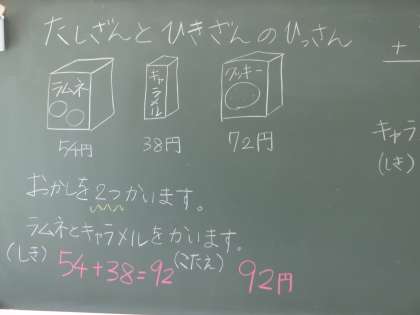 たしざんとひきざんのひっさん
+
ラムネ キャラメル クッキー
54円 38円 72円
キャラ
(しき)
おかしを2つかいます。
ラムネとキャラメルをかいます。
(しき) 54+38=92 (こたえ) 92円